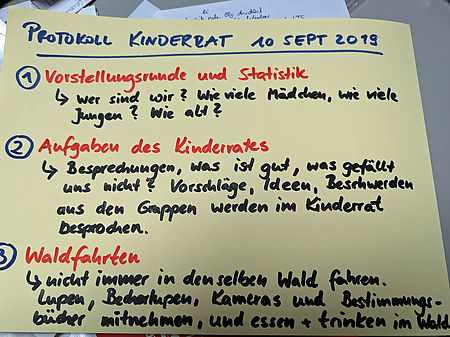 PROTOKOLL KINDERRAT 10 SEPT 2019
① Vorstellungsrunde und Statistik
↳ wer sind wir? Wie viele Mädchen, wie viele
Jungen? Wie alt?
② Aufgaben des Kinderrates
↳ Besprechungen, was ist gut, was gefällt
uns nicht? Vorschläge, Ideen, Beschwerden
aus den Gruppen werden im Kinderrat
besprochen.
③ Waldfahrten
↳ nicht immer in denselben Wald fahren.
Lupen, Becherlupen, Kameras und Bestimmungs-
bücher mitnehmen, und essen + trinken im Wald